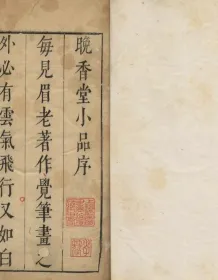 晚香堂小品序
每見眉老著作覺筆畫之
外必有雲氣飛行又如白